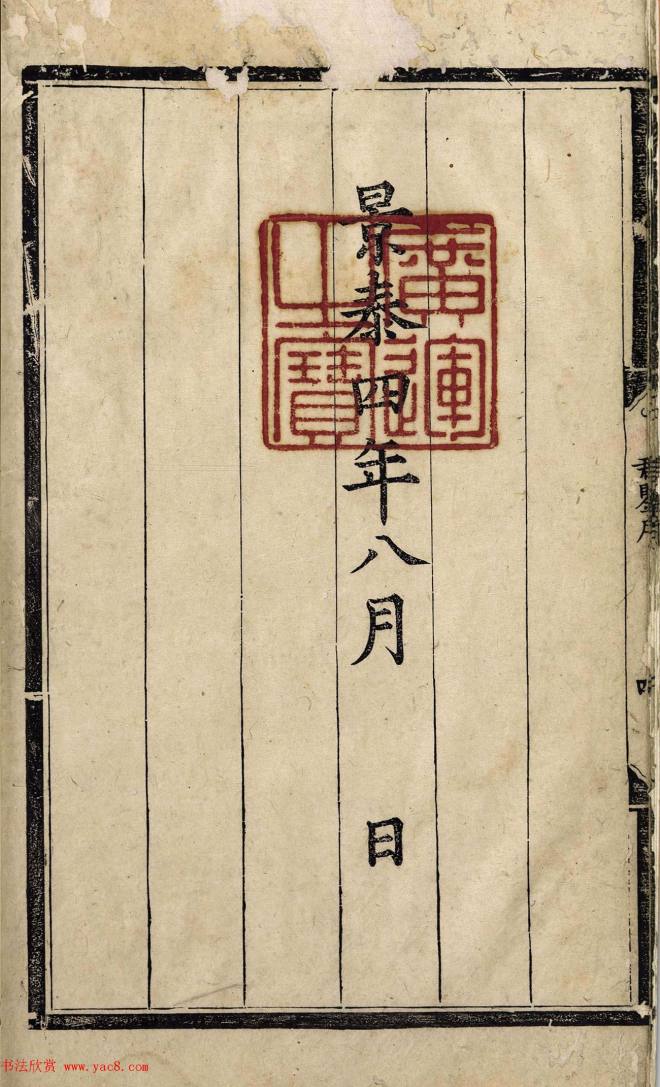 景泰四年八月 日
廣運之寶
书法欣赏 www.yac8.com